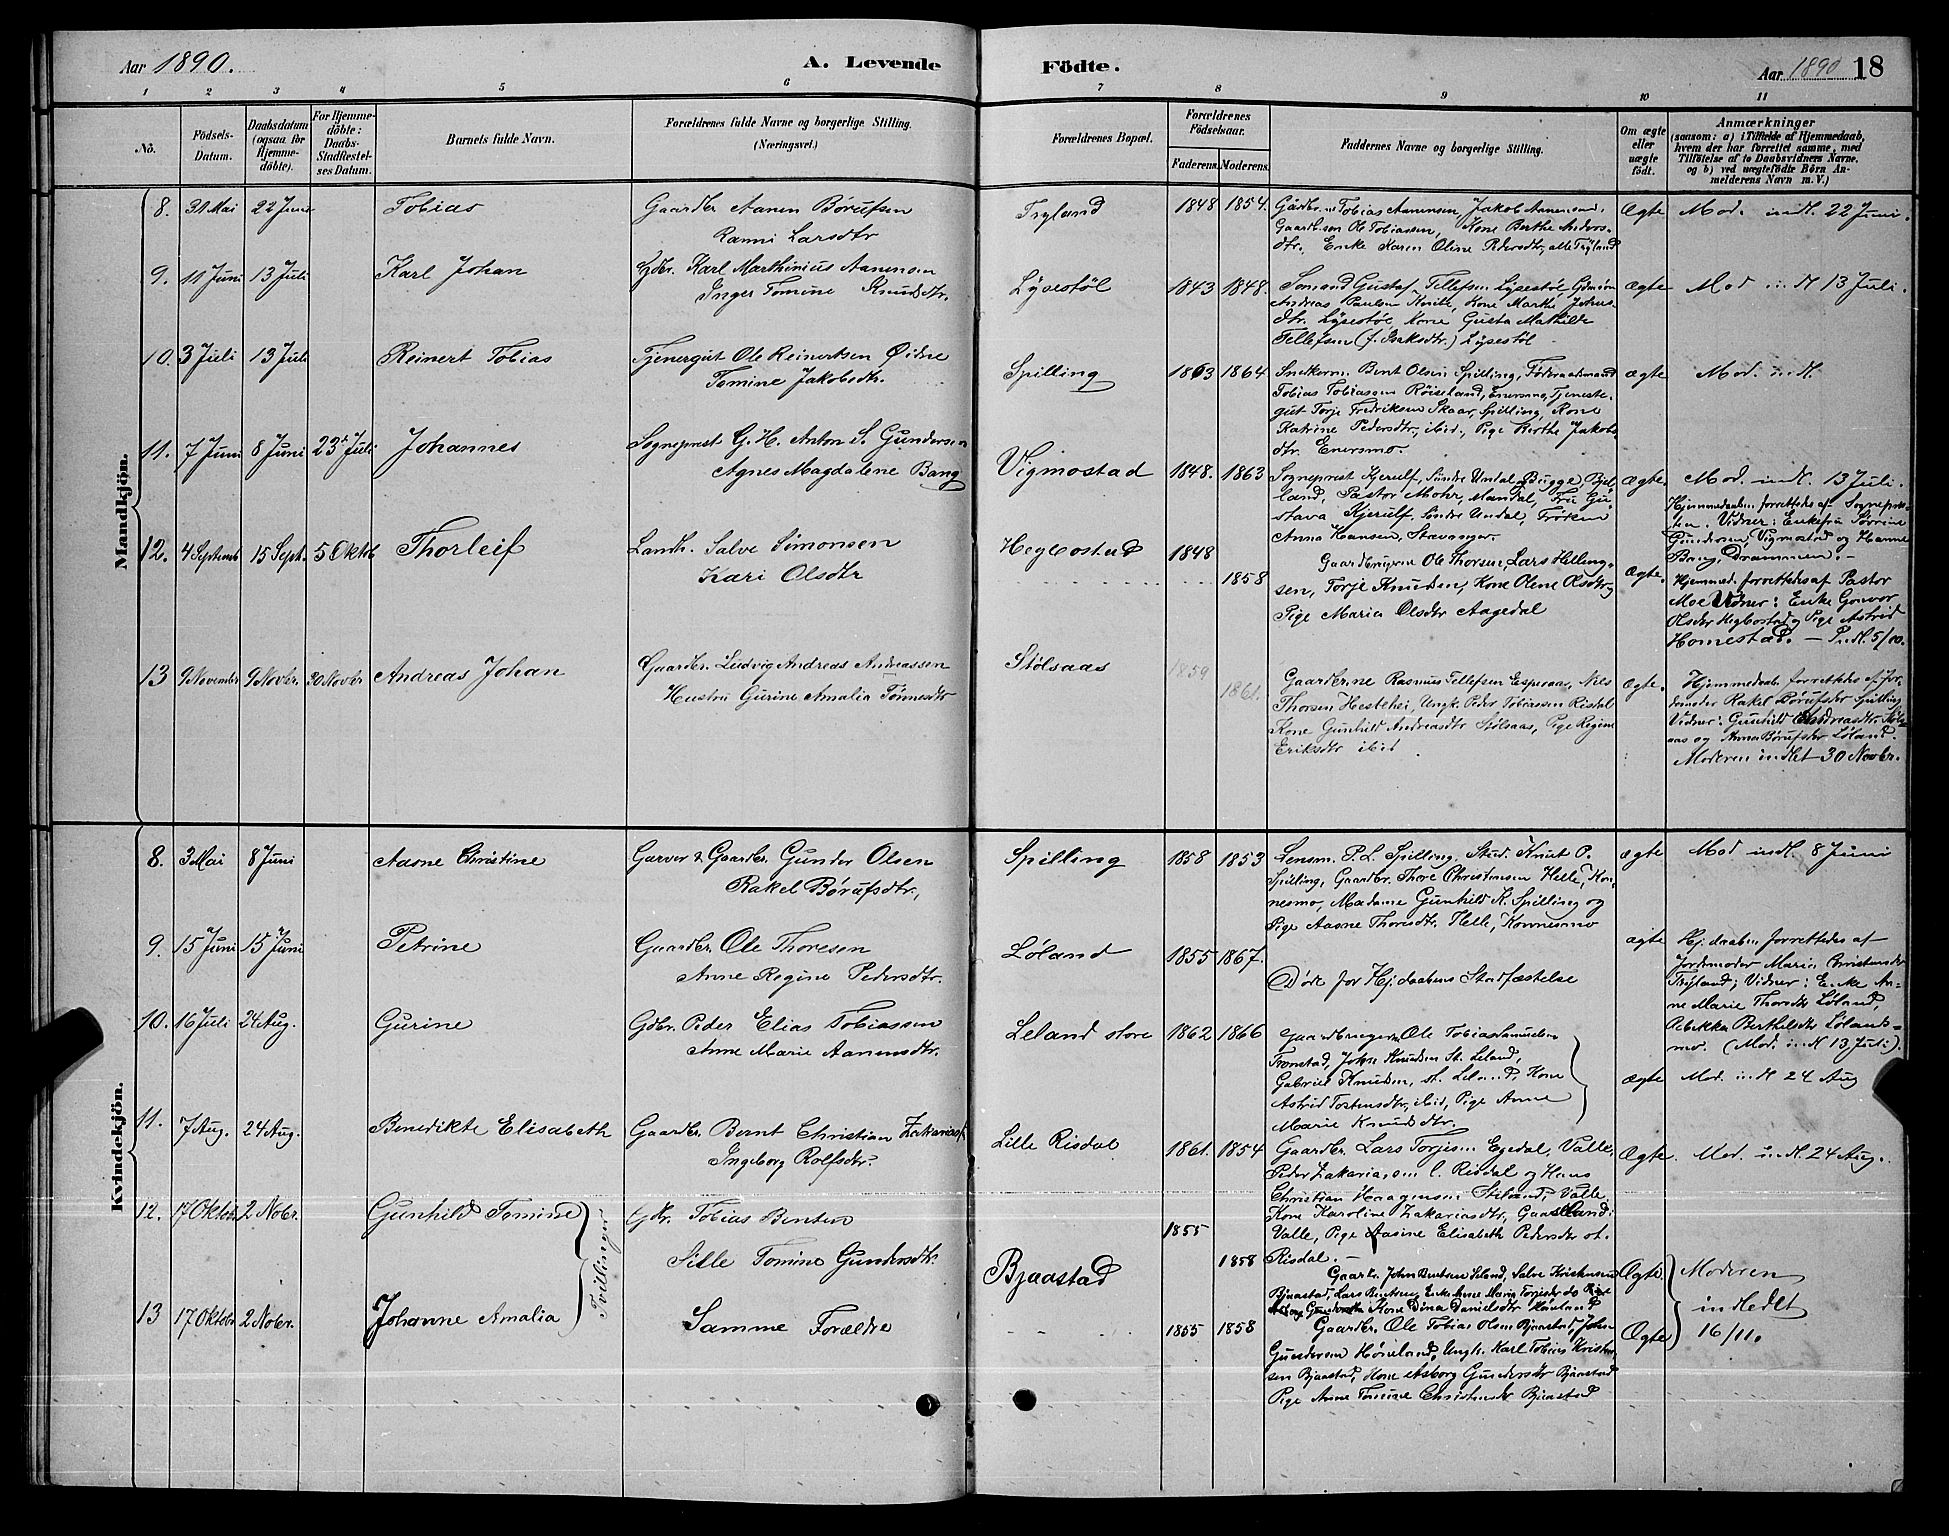 Aar 1890.
A. Levende
Födte.
Aar 1890 18
1 2 3 4 5 6 7 8 9 10 11
No.
Födsels-Datum.
Daabsdatum (ogsaa for Hjemme-döbte).
For Hjemme-döbte: Daabs-Stadfæstel-ses Datum.
Barnets fulde Navn.
Forældrenes fulde Navne og borgerlige Stilling. (Næringsvei.)
Forældrenes Bopæl.
Forældrenes Födselsaar.
Faderens. Moderens.
Faddernes Navne og borgerlige Stilling.
Om ægte eller uægte födt.
Anmærkninger
(saasom: a) i Tilfælde af Hjemmedaab, hvem der har forrettet samme, med Tilföielse af to Daabsvidners Navne, og b) ved uægtefödte Börn Anmelderens Navn m. V.)
Mandkjön.
8. 31 Mai 22 Juni Tobias
Gaardbr Aanen Børufsen
Ranni Larsdtr
Tryland 1848 1854.
Gårdbr. Tobias Aanensen, Jakob Aanensen,
Gaardb.søn Ole Tobiassen, Kone Berthe Anders-
dtr, Enke Karen Oline Pedersdtr, alle Tryland
Ægte Mod. indl. 22 Juni.
9. 11 Juni 13 Juli Karl Johan
Gdbr. Karl Marthinius Aanensen
Inger Tomine Knudsdtr.
Lysestøl 1843 1848.
Sømand Gustaf Tellefsen Lysestøl, Gdmsøn
Andreas Paulsen, Kone Marthe Johns-
dtr. Lysestøl Kone Gusta Mathilde
Tellefsen (f. Isaksdtr.) Lysestøl
ægte Mod indl 13 Juli.
10. 3 Juli 13 Juli Reinert Tobias
Tjenergut Ole Reinertsen Øidne
Tomine Jakobsdtr.
Spilling 1863 1864
Snekkerm. Bent Olsen Spilling, Føderaadsmand
Tobias Tobiassen Røiseland, Enersmo, Tjeneste-
gut Torje Fredriksen Skaar, Spilling, Kone
Katrine Pedersdtr, ibid., Pige Berthe Jakobs
dtr. Enersmo.
ægte Mod. indl.
11. 7 Juni 8 Juni 23de Juli Johannes
Sogneprest G. H. Anton S. Gundersen
Agnes Magdalene Bang
Vigmostad 1848. 1863
Sogneprest Kjerulf, Søndre Undal, Bugge Bjel-
land, Pastor Mohr, Mandal, Fru Gu-
stava Kjerulf, Søndre Undal, Frøken
Anna Hansen, Stavanger.
Ægte. Mod. indl. 13 Juli.
Hjemmedaaben forrettedes af Sognepres-
ten. Vidner: Enkefru Sørine
Gundersen, Vigmostad og Hanne
Bang, Drammen.
12. 4 Septemb 15 Sept. 5 Oktb Thorleif
Landh. Salve Simonsen
Kari Olsdtr
Hegbostad 1848
1858
Gaardbrugerne Ole Thorsen, Lars Helling-
sen, Torje Knudsen, Kone Olene Olsdtr,
Pige Maria Olsdtr Aagedal
Ægte.
Hjemmed. forrettedes af Pastor
Moe Vidner: Enke Gonvor
Olsdtr Hegbostad og Pige Astrid
Homestad. – Indl. 5/10.
13 9 November 9 Novbr. 30 Novbr Andreas Johan
Gaardbr. Ludvig Andreas Andreassen
Hustru Gurine Amalia Tønnesdtr
Stølsaas 1859
1861.
Gaardbrne Rasmus Tellefsen Esperaas, Nils
Thorsen Hestehei, Ungk. Peder Tobiassen Risdal
Kone Gunhild Andreasdtr Stølsaas, Pige Regine
Eriksdtr ibid.
Ægte.
Hjemmedaab. forrettedes af Jor-
demoder Rakel Børufsdtr Spilling
Vidner: Gunhild Andreasdtr Støls-
aas og Anna Børufsdtr Løland.
Moderen indlet 30 Novbr.
Kvindekjön.
8. 3 Mai 8 Juni Aasne Christine
Garver & Gaardbr. Gunder Olsen
Rakel Børufsdtr,
Spilling 1858 1853
Lensm. P. L. Spilling, Stud. Knut P.
Spilling, Gaardbr. Thore Christensen Helle, Kon-
nesmo, Madame Gunhild K. Spilling og
Pige Aasne Thoresdtr. Helle, Konnesmo
ægte Mod indl. 8 Juni
9. 15 Juni 15 Juni Petrine
Gaardbr. Ole Thoresen
Anne Regine Pedersdtr.
Løland 1855 1867.
Døde før Hj.daabens Stadfæstelse
ægte Hj.daaben forrettedes af
Jordemoder Maria Christensdtr
Tryland; Vidner: Enke An-
ne Marie Thorsdtr Løland,
Rebekka Berthelsdtr Lølands-
mo. (Mod. indl 13 Juli).
10. 16 Juli 24 Aug. Gurine
Gdbr. Peder Elias Tobiassen
Anne Marie Aanensdtr.
Leland store 1862 1866
Gaardbrugerne Ole Tobias Knudsen
Tronstad, John Knudsen St. Leland,
Gabriel Knudsen, st. Leland, Kone
Astrid Tostensdtr, ibid, Pige Anne
Marie Knudsdtr.
ægte Mod. indl 24 Aug
11. 7 Aug. 24 Aug. Benedikte Elisabeth
Gaardbr. Bernt Christian Zakarias.
Ingeborg Rolfsdtr.
Lille Risdal 1861. 1854
Gaardbr. Lars Torjesen Egedal, Valle,
Peder Zakariassen l. Risdal og Hans
Christian Haagensen Stiland, Valle,
Kone Karoline Zakariasdtr, Gaasland,
Valle, Pige Aasine Elisabeth Pedersdtr st.
Risdal.
Ægte. Mod. indl. 24 Aug.
12. 17 Oktobr 2 Nobr. Gunhild Tomine
Gbr. Tobias Bentsen
Sille Tomine Gundersdtr.
Bjaastad 1855
1858
Gaardbr. John Bentsen Leland, Salve Kristensen
Bjaastad, Lars Bentsen, Enke Anne Maria Torjesdtr
Kone Dina Danielsdtr Høiland
Ægte. Moderen
indledet
16/11.
Tvillinger
13 17 Oktobr 2 Nobr. Johanne Amalia
Samme Forældre
1855 1858
Gaardbr. Ole Tobias Olsen Bjaastad, John
Gundersen Høiland, Ungk. Karl Tobias Kristen-
sen Bjaastad, Kone Asborg Gundersdtr Bjaastad
Pige Anne Tomine Christensdtr Bjaastad
Ægte